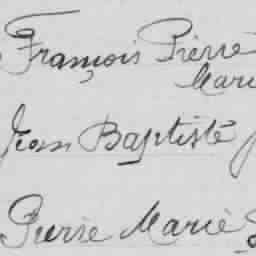 François Pierre
Marie
Jean Baptiste
Pierre Marie